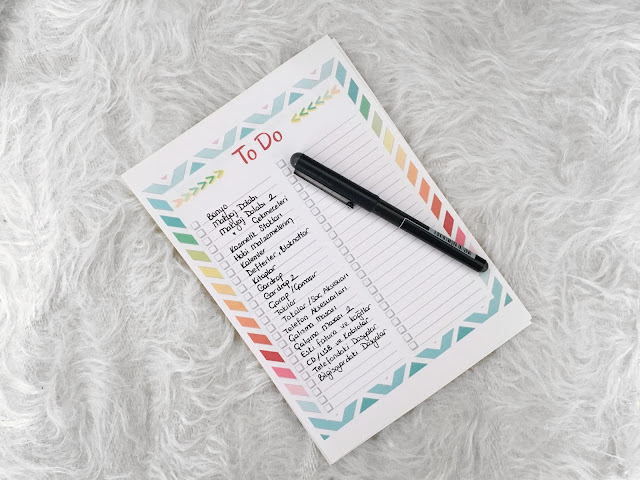 To Do
Banyo
Makyaj Dolabı
Makyaj Dolabı 2
" Çekmeceleri
Kozmetik Stokları
Hobi Malzemelerim
Kalemler
Defterler, Bloknotlar
Kitaplar
Gardrop
Gardrop 2
Çorap / Çamaşır
Takılar
Tokalar / Saç Aksesuarı
Telefon Aksesuarları
Çalışma Masası
Çalışma Masası 2
Eski fatura ve kağıtlar
CD / USB ve Kablolar
Telefondaki Dosyalar
Bilgisayardaki Dosyalar